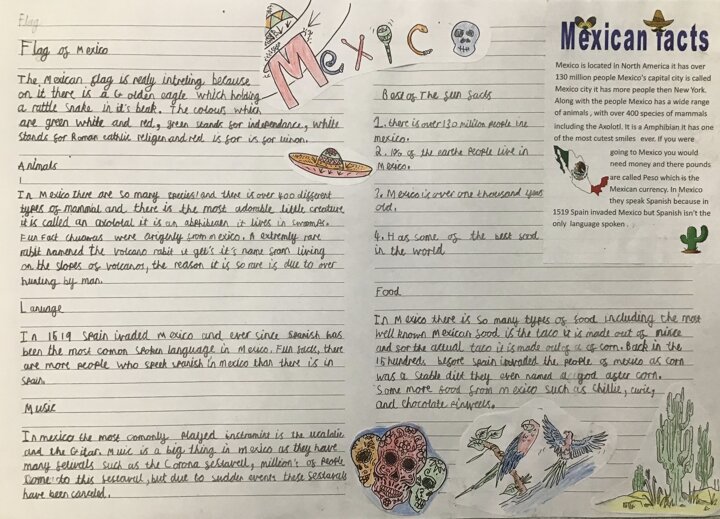 Flag
Flag of Mexico
The Mexican flag is really intreting because
on it there is a Golden eagle which holding
a rattle snake in it's beak. The colours which
are green white and red, green stands for independance, white
stands for Roman cathlic religen and red is for is for union.
Animals
In Mexico there are so many species! and there is over 400 different
types of mammal and there is the most adorable little creature
it is called an axolotal it is an abhibuen it lives in swamps.
Fun Fact chuawas were origenly from mexico. A extremly rare
rabbt namered the volcano rabit it get's it's name from living
on the slopes of volcanos, the reason it is so rare is due to over
hunting by man.
Lanuage
In 1519 Spain invaded Mexico and ever since spanish has
been the most comon spoken language in Mexico. Fun facts, there
are more people who speak spanish in mexico than there is in
Spain.
Music
In mexico the most comonly played instramint is the ucalalie
and the Gitar. Music is a big thing in mexico as they have
many festevals such as the Corona festavell, million's of people
come to this festaval, but due to sudden events these festavals
have been canceled.
Mexico
Best of The fun facts
1. there is over 130 million people in
mexico.
2. 1% of the earths people live in
Mexico.
3. Mexico is over one thousand years
old.
4. Has some of the best food
in the world
Food
In Mexico there is so many types of food including the most
well known Mexican food is the taco it is made out of mince
and for the actual taco it is made out of of corn. Back in the
15 hundreds before Spain invaded the people of mexico as corn
was a stable diet they even named a god after corn.
Some more food from Mexico such as chillie,
and chocolate
Mexican facts
Mexico is located in North America it has over
130 million people Mexico's capital city is called
Mexico city it has more people then New York.
Along with the people Mexico has a wide range
of animals , with over 400 species of mammals
including the Axolotl. It is a Amphibian it has one
of the most cutest smiles ever. If you were
going to Mexico you would
need money and there pounds
are called Peso which is the
Mexican currency. In Mexico
they speak Spanish because in
1519 Spain invaded Mexico but Spanish isn't the
only language spoken .